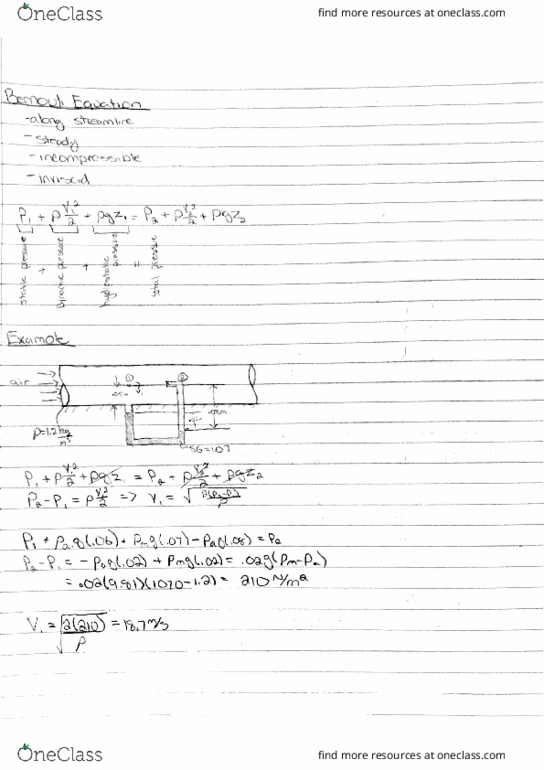 OneClass find more resources at oneclass.com
Bernouli Equation
- along streamline
- steady
- incompressible
- inviscid
P₁ + ρV₁²/2 + ρgz₁ = P₂ + ρV₂²/2 + ρgz₂
static pressure + dynamic pressure + hydrostatic pressure = total pressure
Example
air
① ②
ρ=1.2 kg/m³
SG=1.07
P₁ + ρV₁²/2 + ρgz₁ = P₂ + ρV₂²/2 + ρgz₂
P₂ - P₁ = ρV₁²/2 => V₁ =
= P₂
P₂ - P₁ = -ρag(.02) + ρmg(.02) = .02g(ρm-ρa)
= .02(9.81)(1070-1.2) = 210 N/m²
V₁ = √2(210)/ρ = 18.7 m/s
OneClass find more resources at oneclass.com